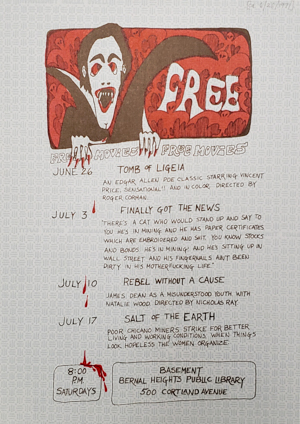 FREE
FREE MOVIES FREE MOVIES
JUNE 26 TOMB OF LIGEIA
AN EDGAR ALLEN POE CLASSIC STARRING VINCENT
PRICE. SENSATIONAL!! AND IN COLOR. DIRECTED BY
ROGER CORMAN.
JULY 3 FINALLY GOT THE NEWS
THERE'S A CAT WHO WOULD STAND UP AND SAY TO
YOU HE'S IN MINING AND HE HAS PAPER CERTIFICATES
WHICH ARE EMBROIDERED AND SHIT. YOU KNOW STOCKS
AND BONDS. HE'S IN MINING! AND HE'S SITTING UP IN
WALL STREET AND HIS FINGERNAILS AIN'T BEEN
DIRTY IN HIS MOTHERFUCKING LIFE!
JULY 10 REBEL WITHOUT A CAUSE
JAMES DEAN AS A MISUNDERSTOOD YOUTH WITH
NATALIE WOOD. DIRECTED BY NICHOLAS RAY.
JULY 17 SALT OF THE EARTH
POOR CHICANO MINERS STRIKE FOR BETTER
LIVING AND WORKING CONDITIONS. WHEN THINGS
LOOK HOPELESS THE WOMEN ORGANIZE.
8:00
PM
SATURDAYS
BASEMENT
BERNAL HEIGHTS PUBLIC LIBRARY
500 CORTLAND AVENUE